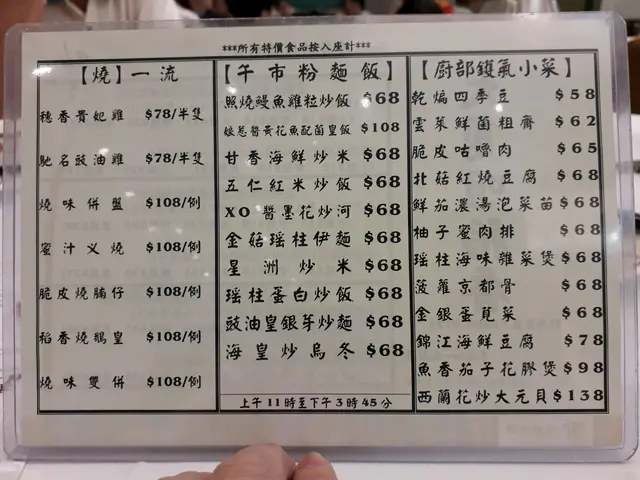 ***所有特價食品按入座計***
【燒】一流
穗香貴妃雞 $78/半隻
馳名豉油雞 $78/半隻
燒味併盤 $108/例
蜜汁义燒 $108/例
脆皮燒腩仔 $108/例
稻香燒鵝皇 $108/例
燒味雙併 $108/例
【午市粉麵飯】
照燒鰻魚雞粒炒飯 $68
娘惹醬黃花魚配菌皇飯 $108
甘香海鮮炒米 $68
五仁紅米炒飯 $68
XO醬墨花炒河 $68
金菇瑶柱伊麵 $68
星洲炒米 $68
瑶柱蛋白炒飯 $68
豉油皇銀芽炒麵 $68
海皇炒烏冬 $68
上午11時至下午3時45分
【廚部鑊氣小菜】
乾煸四季豆 $58
雲菜鮮菌粗齋 $62
脆皮咕嚕肉 $65
北菇紅燒豆腐 $68
鮮茄濃湯泡菜苗 $68
柚子蜜肉排 $68
瑶柱海味雜菜煲 $68
菠蘿京都骨 $68
金銀蛋莧菜 $68
錦江海鮮豆腐 $78
魚香茄子花膠煲 $98
西蘭花炒大元貝 $138